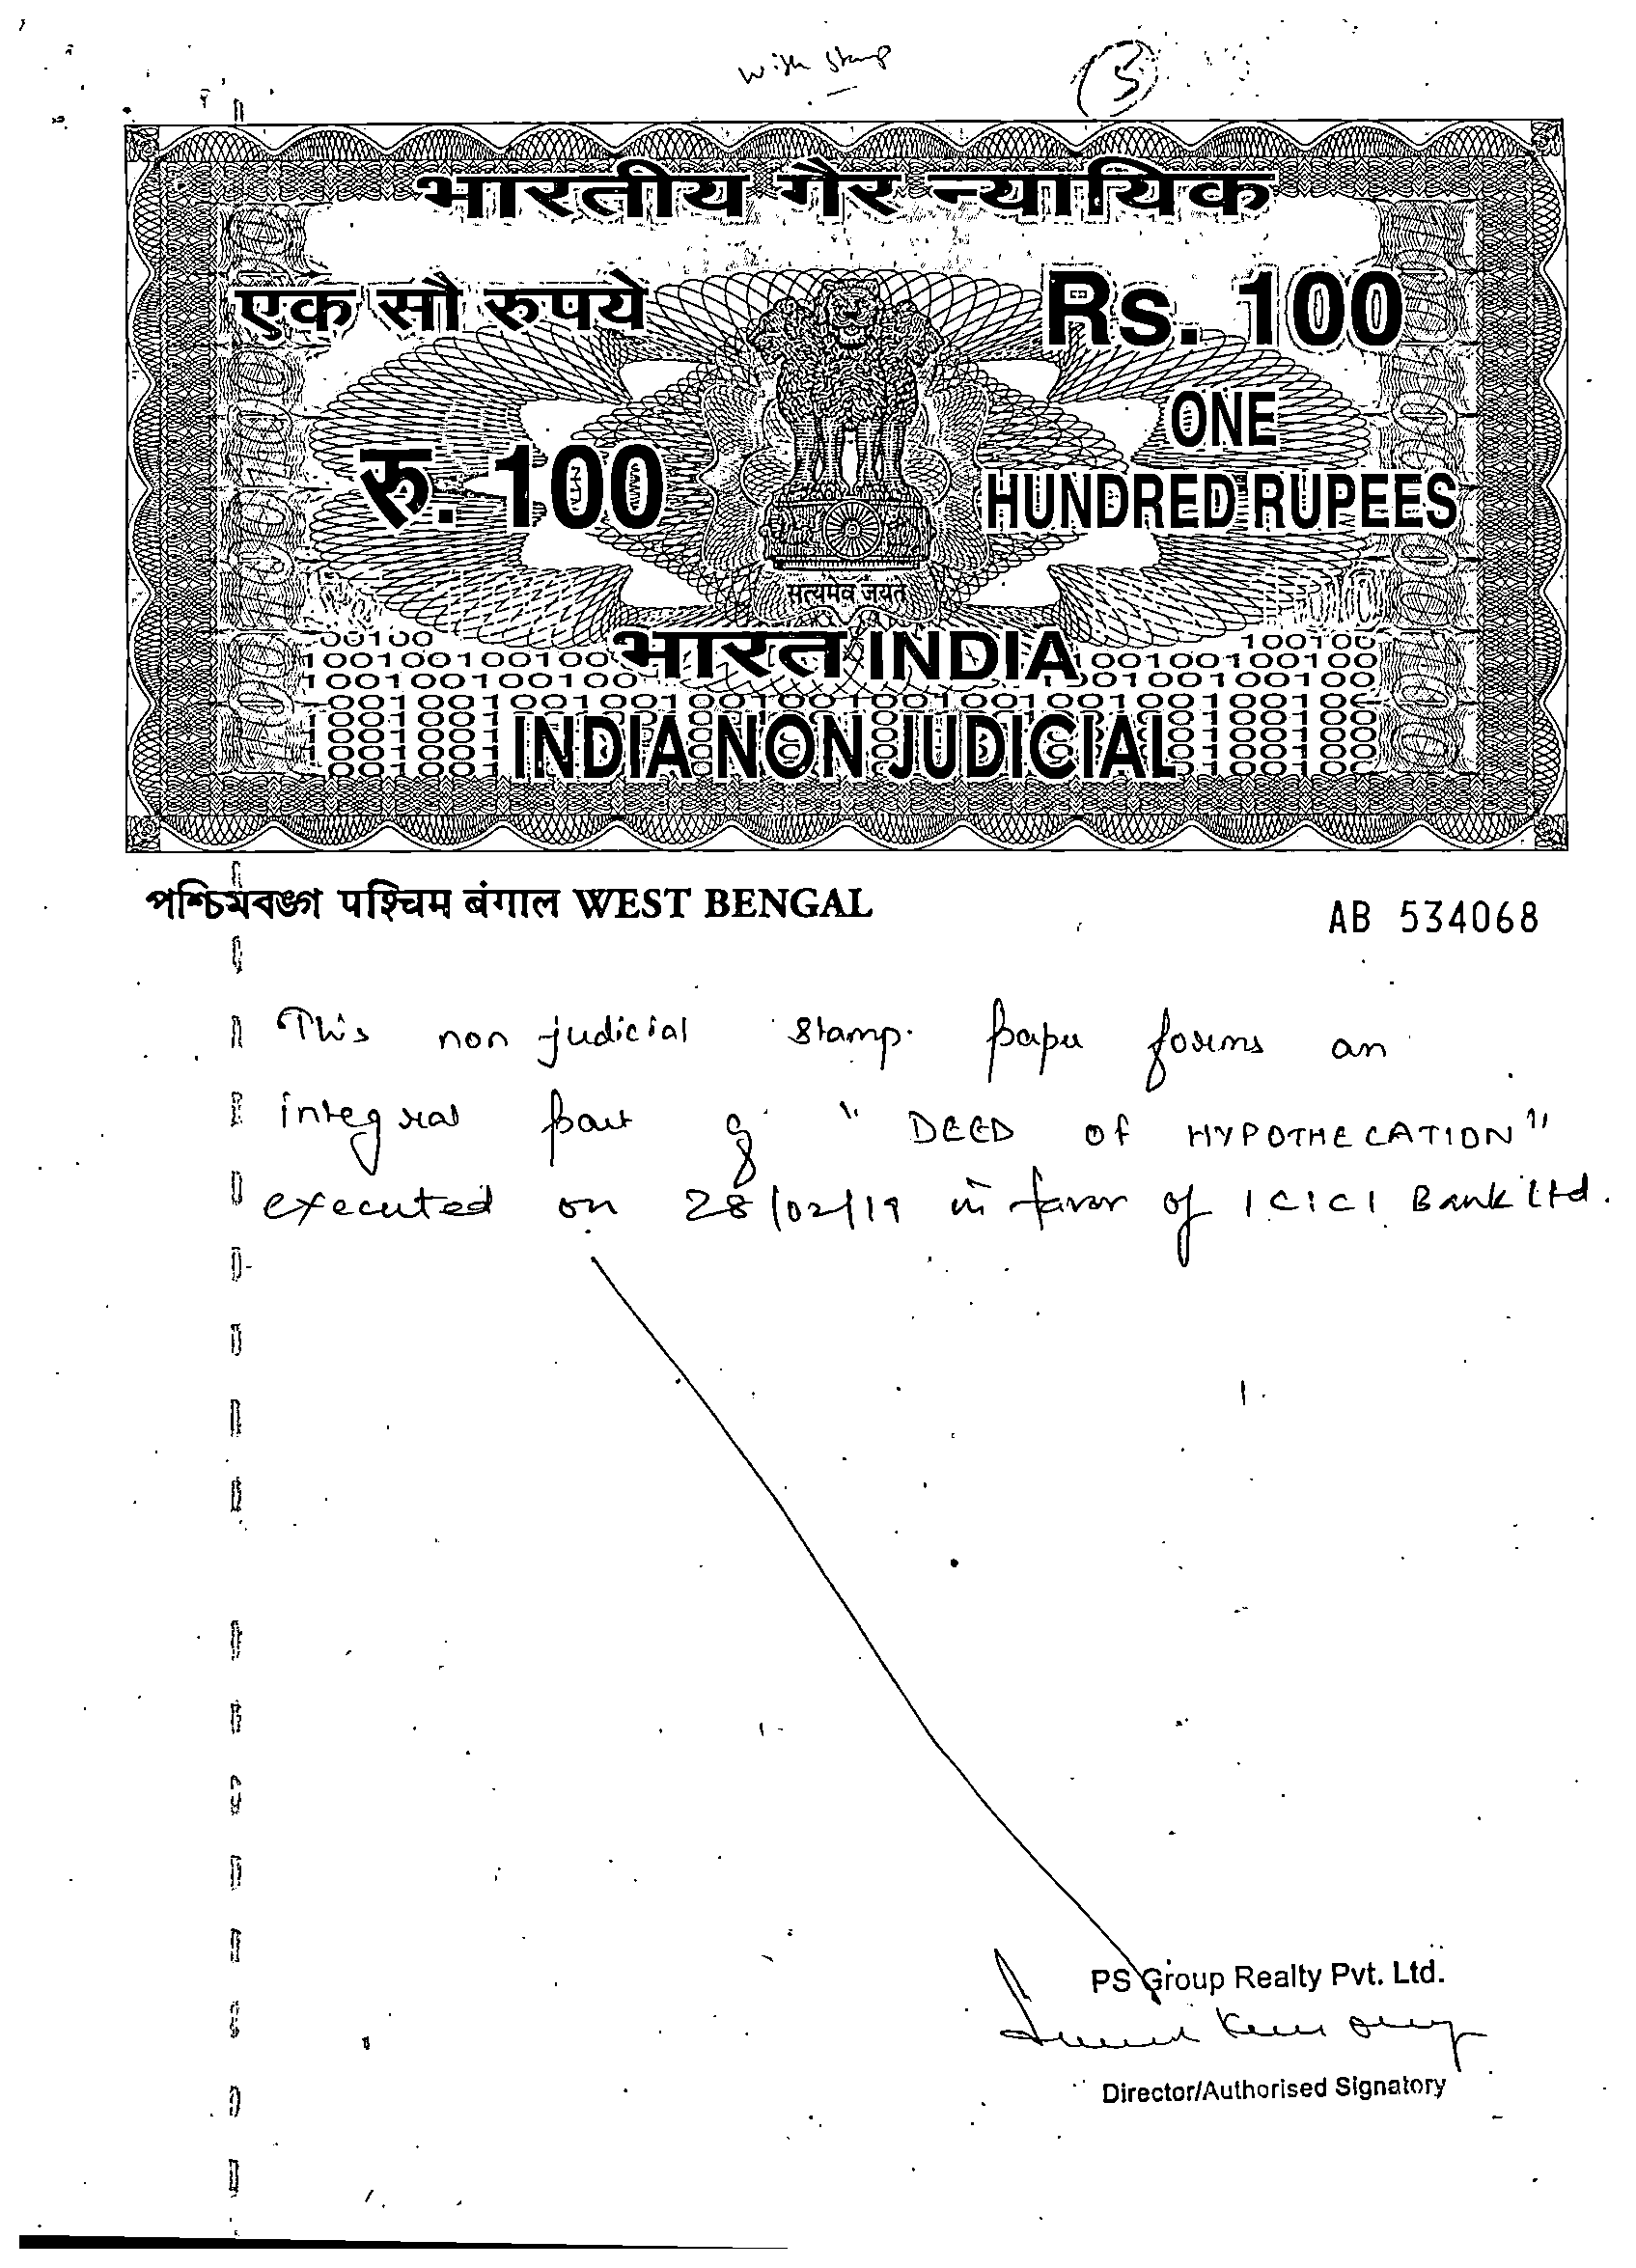 with stamp
(3)
भारतीय गैर न्यायिक
एक सौ रुपये
Rs. 100
रु. 100
ONE
HUNDRED RUPEES
सत्यमेव जयते
भारत INDIA
INDIA NON JUDICIAL
পশ্চিমবঙ্গ पश्चिम बंगाल WEST BENGAL
AB 534068
This non judicial stamp paper forms an
integral part of "DEED OF HYPOTHECATION"
executed on 28/02/19 in favor of ICICI Bank Ltd.
PS Group Realty Pvt. Ltd.
Director/Authorised Signatory